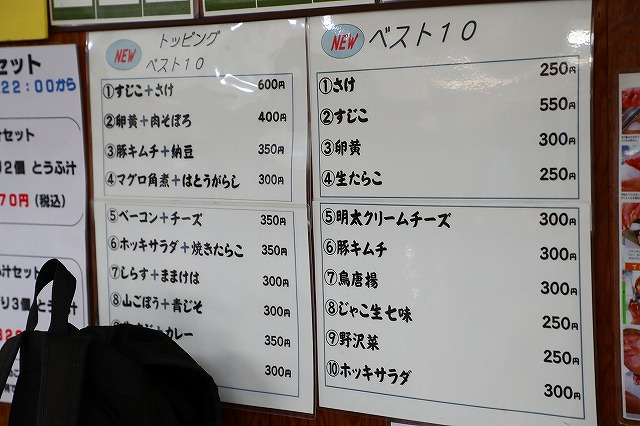 セット
22：00から
セット
2個 とうふ汁
70円（税込）
汁セット
り3個 とうふ
NEW トッピング
ベスト10
①すじこ＋さけ 600円
②卵黄＋肉そぼろ 400円
③豚キムチ＋納豆 350円
④マグロ角煮＋はとうがらし 300円
⑤ベーコン＋チーズ 350円
⑥ホッキサラダ＋焼きたらこ 350円
⑦しらす＋ままけは 300円
⑧山ごぼう＋青じそ 300円
カレー 350円
300円
NEW ベスト10
①さけ 250円
②すじこ 550円
③卵黄 300円
④生たらこ 250円
⑤明太クリームチーズ 300円
⑥豚キムチ 300円
⑦鳥唐揚 300円
⑧じゃこ生七味 250円
⑨野沢菜 250円
⑩ホッキサラダ 300円